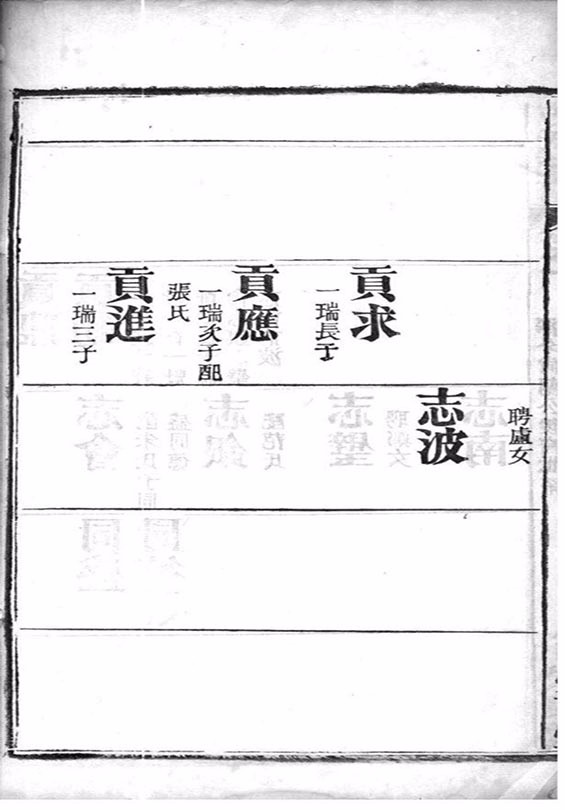 聘盧女
志波
貢求
一瑞長子
貢應
一瑞次子配
張氏
貢進
一瑞三子